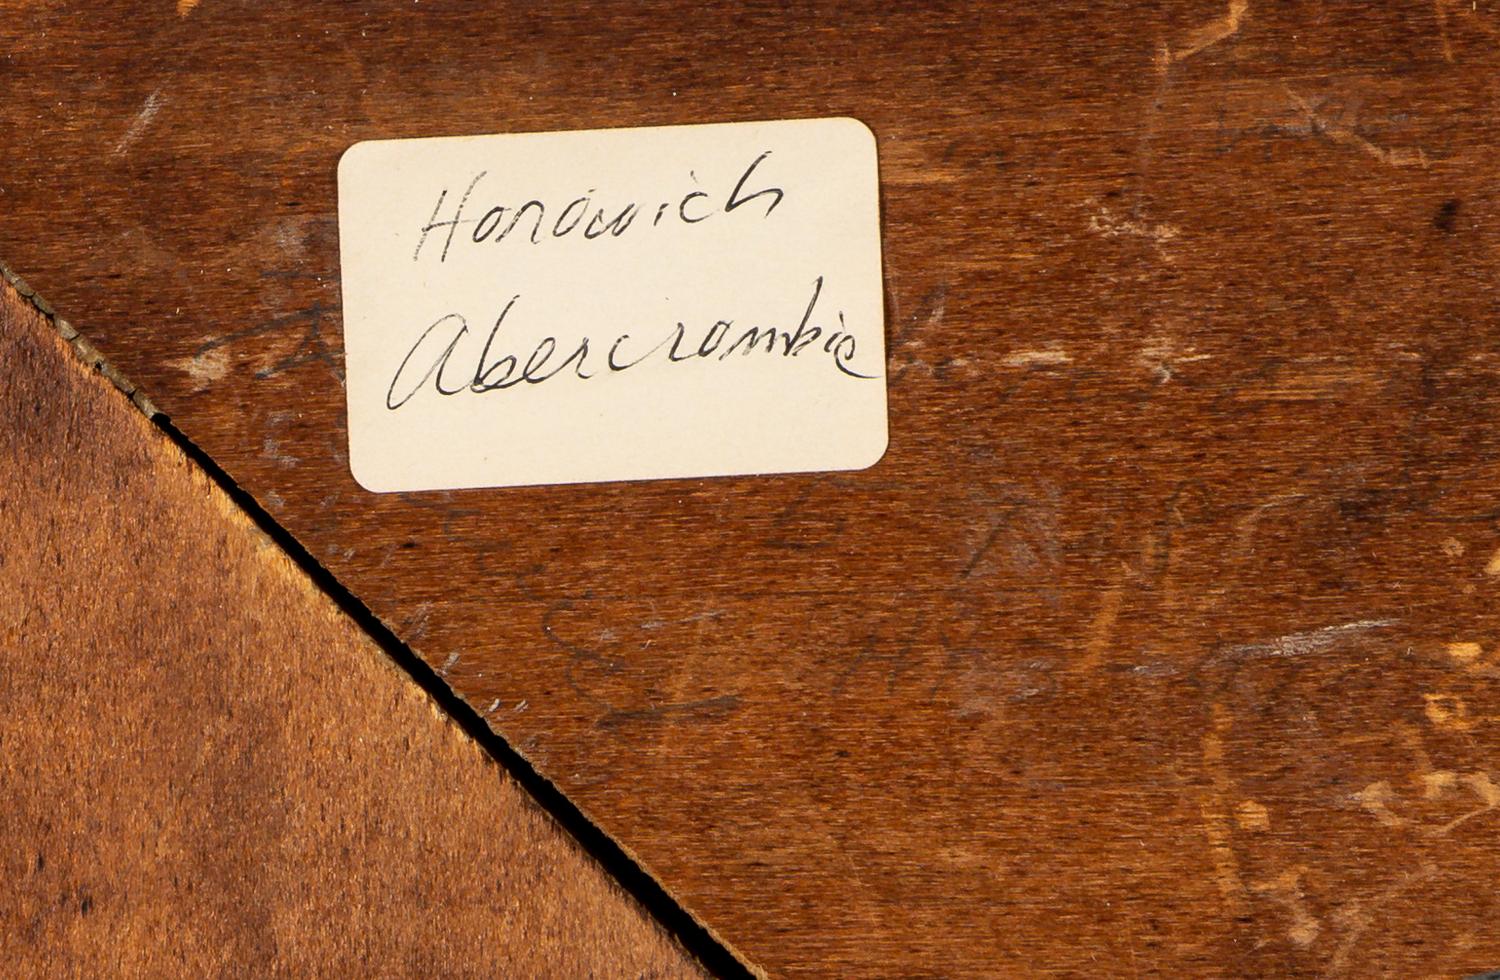 Honowich
Abercrombie